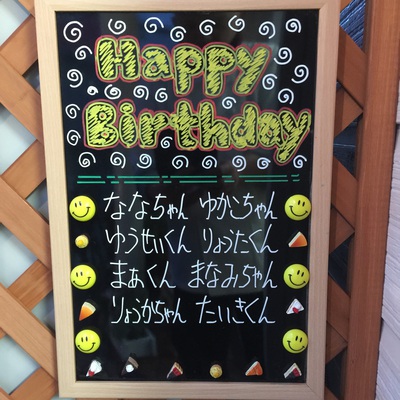 Happy
Birthday
ななちゃん ゆかこちゃん
ゆうせいくん りょうたくん
まぁくん まなみちゃん
りょうかちゃん たいきくん